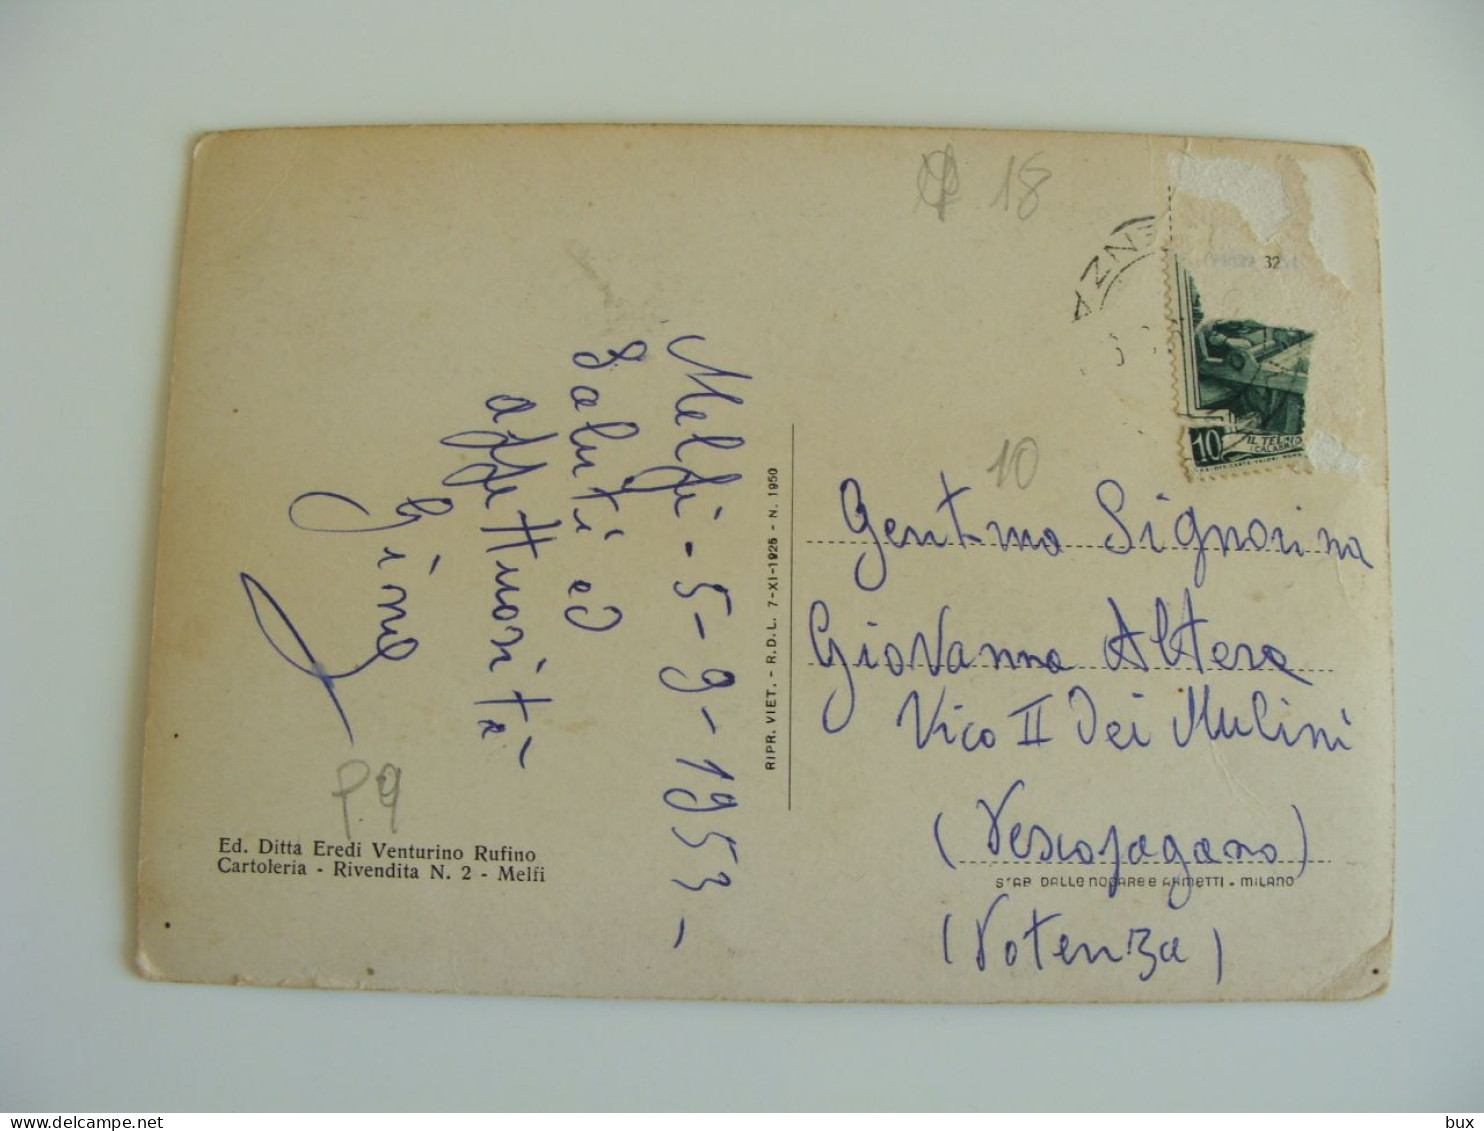 18
10
Melfi - 5-9-1953 -
Saluti ed
affettuosità
Gino
P.9
Ed. Ditta Eredi Venturino Rufino
Cartoleria - Rivendita N. 2 - Melfi
RIPR. VIET. - R.D.L. 7-XI-1925 - N. 1950
32
10 IL TELAIO
(CALABRIA
Gent.ma Signorina
Giovanna Altera
Vico II Dei Mulini
(Pescopagano)
STAB DALLE NOGARE E ARMETTI - MILANO
(Potenza)
bux
bux